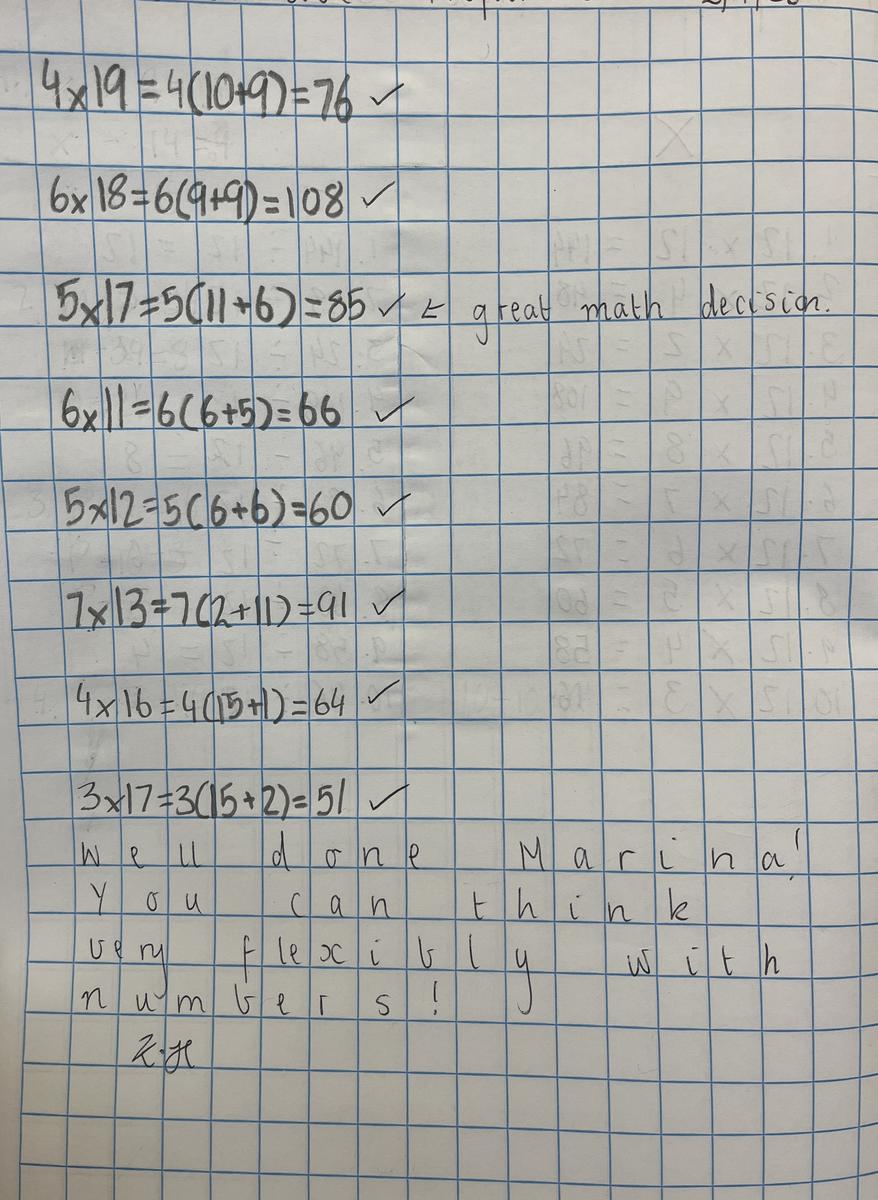 4×19=4(10+9)=76 ✓
6×18=6(9+9)=108 ✓
5×17=5(11+6)=85 ✓ ← great math decision.
6×11=6(6+5)=66 ✓
5×12=5(6+6)=60 ✓
7×13=7(2+11)=91 ✓
4×16=4(15+1)=64 ✓
3×17=3(15+2)=51 ✓
Well done Marina!
You can think
very flexibly with
numbers!
Z.H